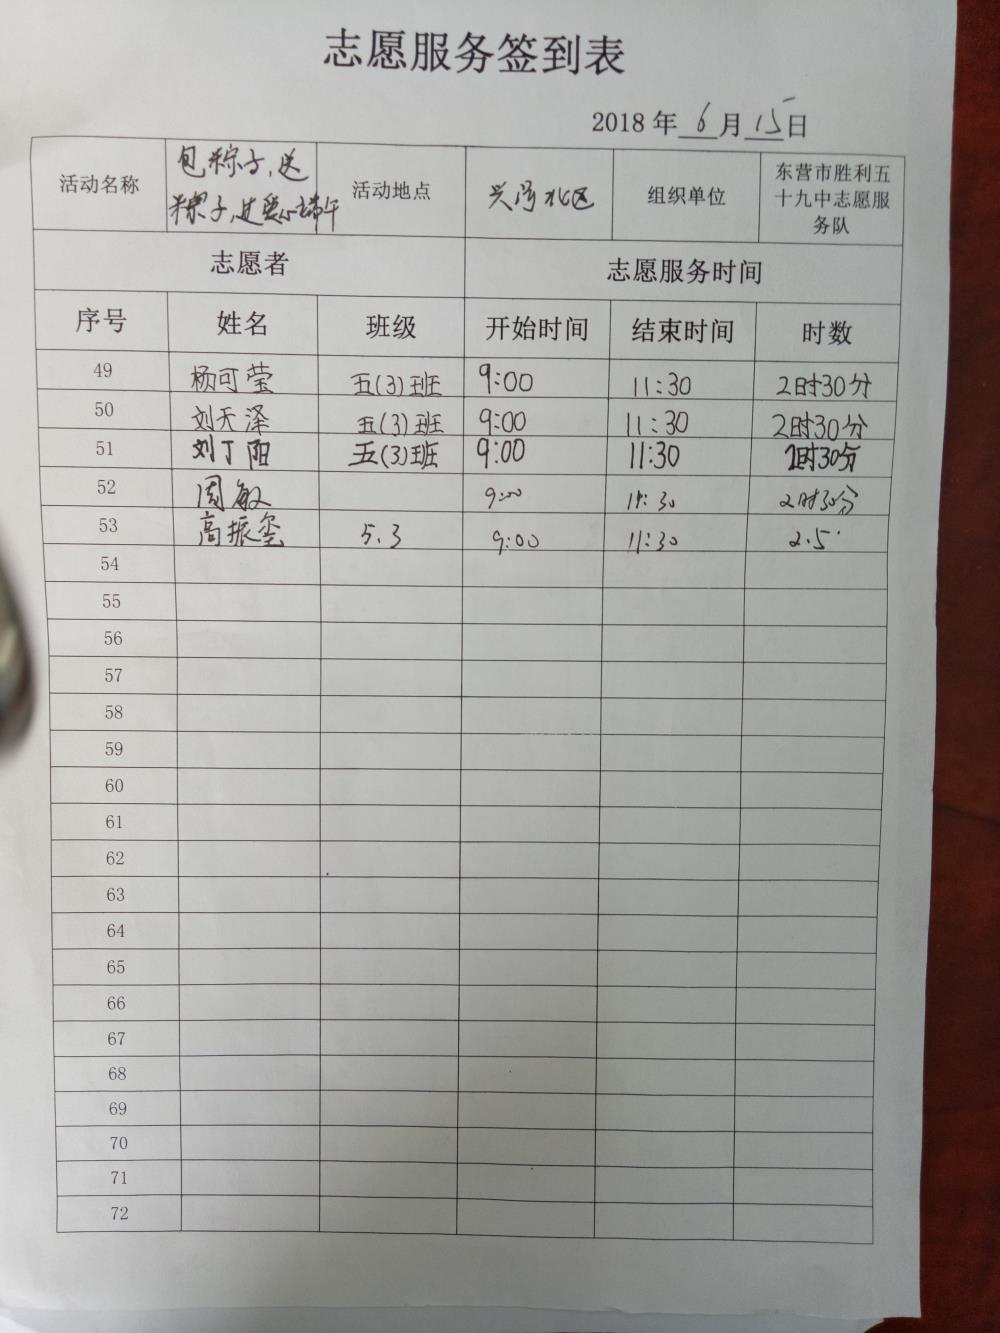 志愿服务签到表
2018 年 6 月 15 日
活动名称 包粽子,送粽子,过爱心端午 活动地点 兴河北区 组织单位 东营市胜利五十九中志愿服务队
志愿者 志愿服务时间
序号 姓名 班级 开始时间 结束时间 时数
49 杨可莹 五(3)班 9:00 11:30 2时30分
50 刘天泽 五(3)班 9:00 11:30 2时30分
51 刘丁阳 五(3)班 9:00 11:30 2时30分
52 周敏 9:00 11:30 2时30分
53 高振玺 5.3 9:00 11:30 2.5
54
55
56
57
58
59
60
61
62
63
64
65
66
67
68
69
70
71
72